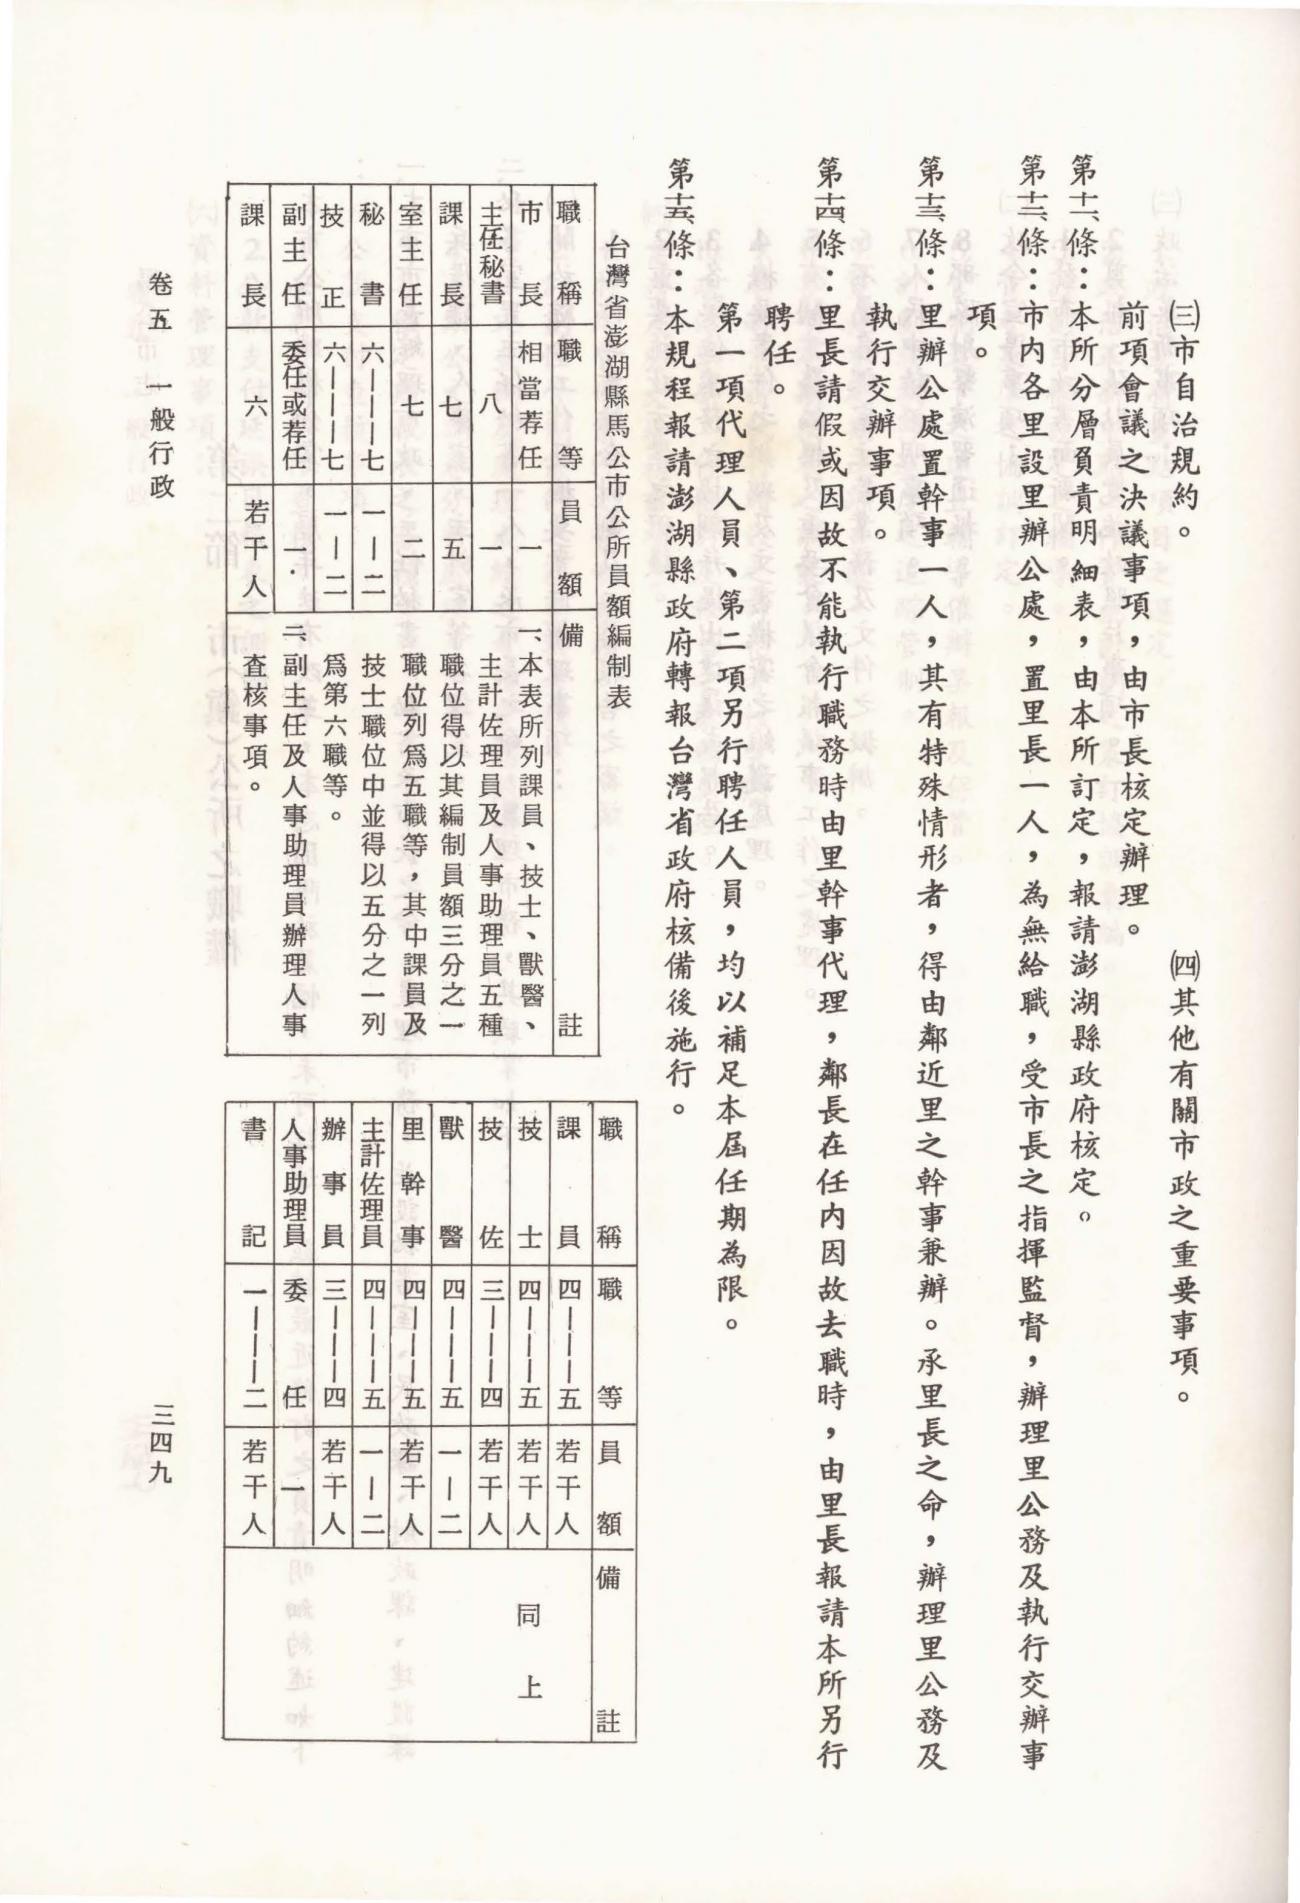 ㈢市自治規約。
㈣其他有關市政之重要事項。
前項會議之決議事項，由市長核定辦理。
第十一條：本所分層負責明細表，由本所訂定，報請澎湖縣政府核定。
第十二條：市內各里設里辦公處，置里長一人，為無給職，受市長之指揮監督，辦理里公務及執行交辦事
項。
第十三條：里辦公處置幹事一人，其有特殊情形者，得由鄰近里之幹事兼辦。承里長之命，辦理里公務及
執行交辦事項。
第十四條：里長請假或因故不能執行職務時由里幹事代理，鄰長在任內因故去職時，由里長報請本所另行
聘任。
第一項代理人員、第二項另行聘任人員，均以補足本屆任期為限。
第十五條：本規程報請澎湖縣政府轉報台灣省政府核備後施行。
台灣省澎湖縣馬公市公所員額編制表
職稱 職等 員額 備註
市長 相當荐任 一
主任秘書 八 一
課長 七 五
室主任 七 二
秘書 六———七 一—二
技正 六———七 一—二
副主任 委任或荐任 一
課長 六 若干人
一、本表所列課員、技士、獸醫、
主計佐理員及人事助理員五種
職位得以其編制員額三分之一
職位列爲五職等，其中課員及
技士職位中並得以五分之一列
爲第六職等。
二、副主任及人事助理員辦理人事
查核事項。
職稱 職等 員額 備註
課員 四———五 若干人
技士 四———五 若干人
技佐 三———四 若干人
獸醫 四———五 一—二
里幹事 四———五 若干人
主計佐理員 四———五 一—二
辦事員 三———四 若干人
人事助理員 委任 一
書記 一———二 若干人
同上
卷五 一般行政
三四九